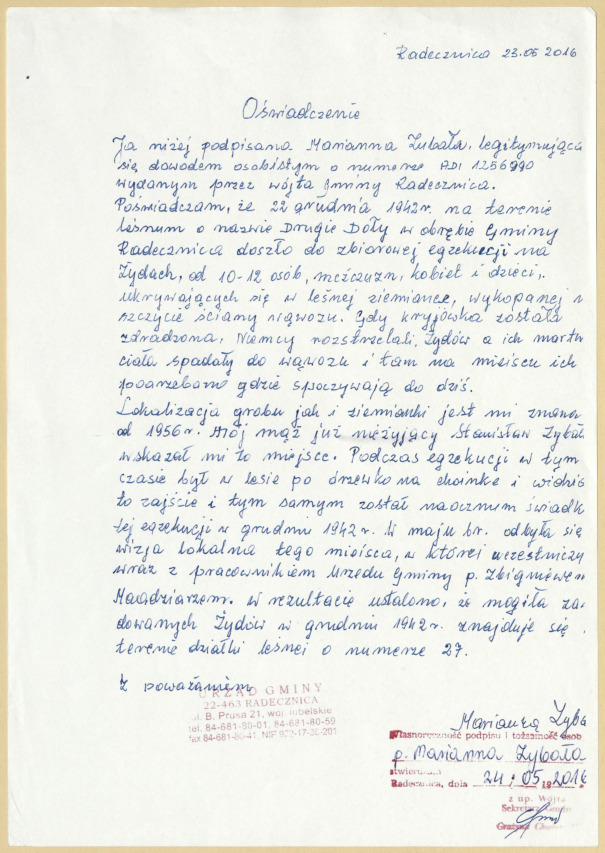 Radecznica 23.05 2016
Oświadczenie
Ja niżej podpisana Marianna Zybała, legitymująca
się dowodem osobistym o numerze ADI 1256990
wydanym przez wójta Gminy Radecznica.
Poświadczam, że 22 grudnia 1942r. na terenie
leśnym o nazwie Drugie Doły w obrębie Gminy
Radecznica doszło do zbiorowej egzekucji na
Żydach, od 10-12 osób, mężczyzn, kobiet i dzieci,
ukrywających się w leśnej ziemiance, wykopanej
szczycie ściany wąwozu. Gdy kryjówka została
zdradzona, Niemcy rozstrzelali, Żydów a ich martw
ciała spadały do wąwozu i tam na miejscu ich
pogrzebano gdzie spoczywają do dziś.
Lokalizacja grobu jak i ziemianki jest mi znana
od 1956r. Mój mąż już nieżyjący Stanisław Zybał
wskazał mi to miejsce. Podczas egzekucji w tym
czasie był w lesie po drzewko na choinkę i widzia
to zajście i tym samym został naocznym świadk
tej egzekucji w grudniu 1942r. W maju br. odbyła się
wizja lokalna tego miejsca, w której uczestniczy
wraz z pracownikiem Urzędu Gminy p. Zbigniewem
w rezultacie ustalono, że mogiła za
dowanych Żydów w grudniu 1942r. znajduje się
terenie działki leśnej o numerze 27.
Z poważaniem
URZĄD GMINY
22-463 RADECZNICA
ul. B. Prusa 21, woj. lubelskie
tel. 84-681-80-01, 84-681-80-59
fax 84-681-80-41, NIP
Marianna Zyba
Własnoręczność podpisu i tożsamość osob
p. Marianna Zybała
stwierdzam
Radecznica, dnia 24.05 2016
z up. Wójta
Sekretarz Gminy
Grażyna